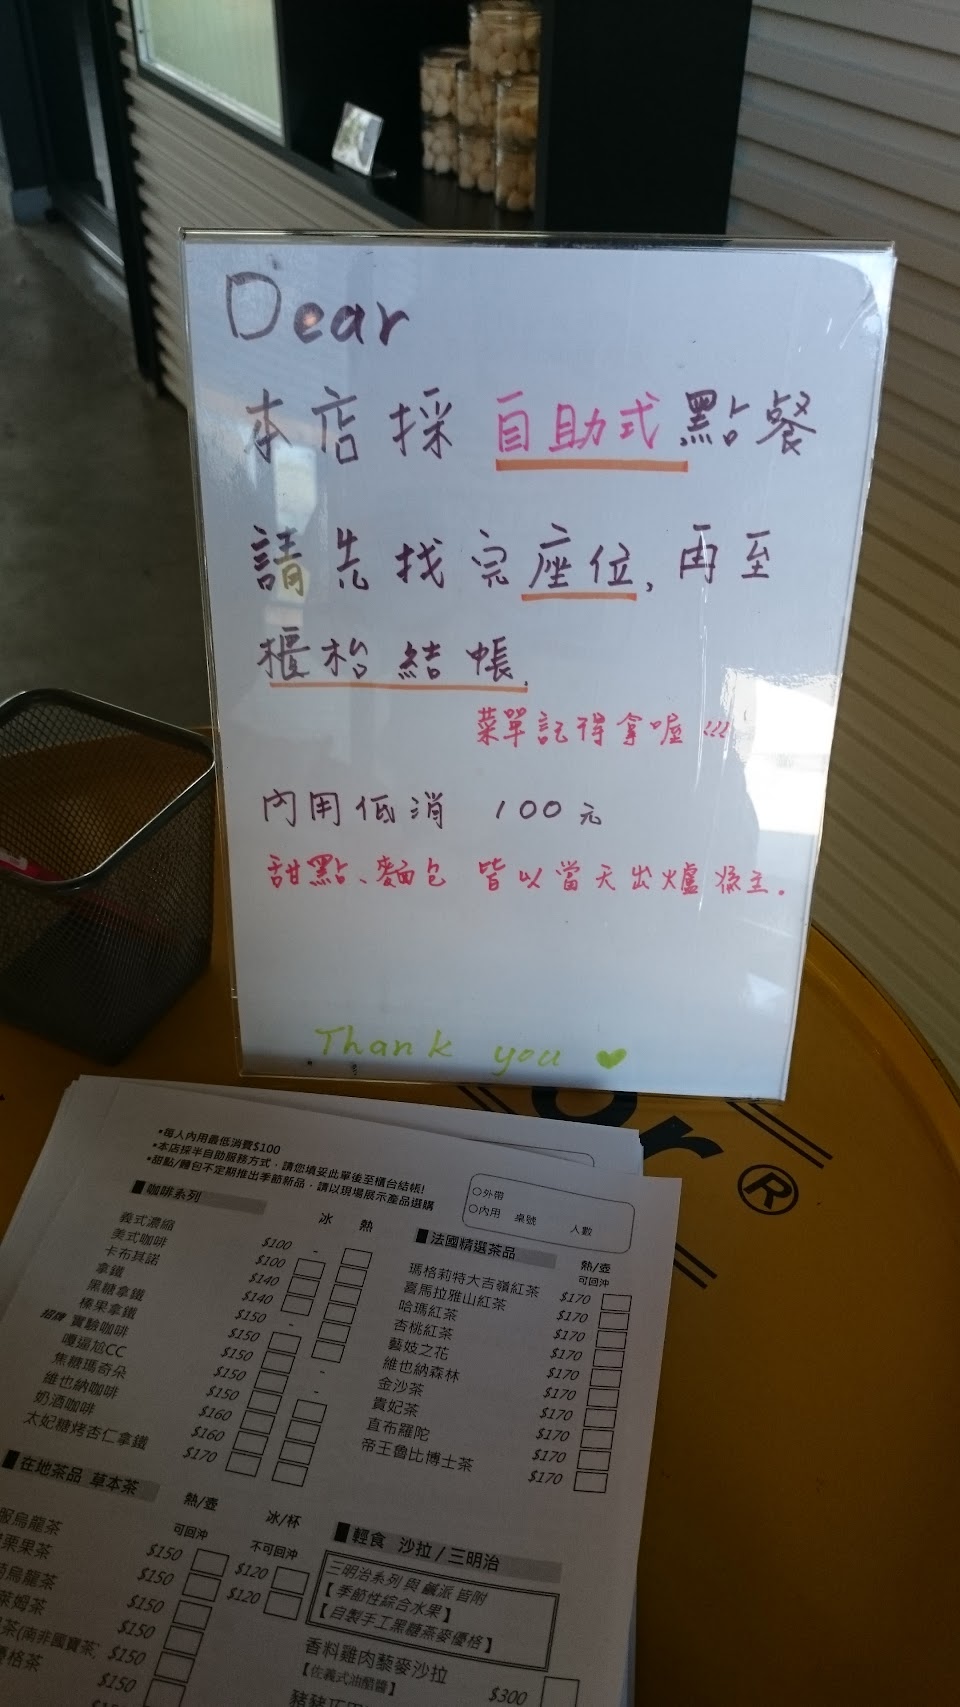 Dear
本店採自助式點餐
請先找完座位,再至
櫃枱結帳.
菜單記得拿喔!!!
內用低消 100元
甜點、麵包 皆以當天出爐為主.
Thank you
or®
•每人內用最低消費$100
•本店採半自助服務方式,請您填妥此單後至櫃台結帳!
•甜點/麵包不定期推出季節新品,請以現場展示產品選購
○外帶
○內用 桌號 人數
■咖啡系列 冰 熱
義式濃縮 $100 -
美式咖啡 $100
卡布其諾 $140
拿鐵 $140
黑糖拿鐵 $150
榛果拿鐵 $150
招牌 實驗咖啡 $150
嘎逼尬CC $150
焦糖瑪奇朵 $150
維也納咖啡 $160
奶酒咖啡 $160
太妃糖烤杏仁拿鐵 $170
■法國精選茶品 熱/壺
可回沖
瑪格莉特大吉嶺紅茶 $170
喜馬拉雅山紅茶 $170
哈瑪紅茶 $170
杏桃紅茶 $170
藝妓之花 $170
維也納森林 $170
金沙茶 $170
貴妃茶 $170
直布羅陀 $170
帝王魯比博士茶 $170
■在地茶品 草本茶 熱/壺 冰/杯
可回沖 不可回沖
烏龍茶 $150 $120
栗果茶 $150 $120
烏龍茶 $150
萊姆茶 $150
茶(南非國寶茶) $150
優格茶 $150
■輕食 沙拉/三明治
三明治系列 與 鹹派 皆附
【季節性綜合水果】
【自製手工黑糖燕麥優格】
香料雞肉藜麥沙拉 $300
【佐義式油醋醬】